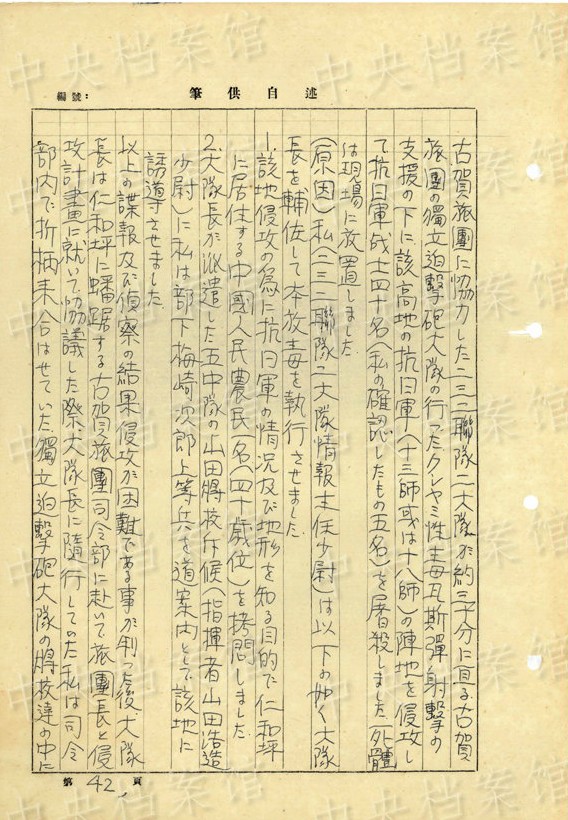 中央档案馆
編號：
筆供自述
古賀旅團に協力した二三二聯隊二大隊が約三十分に亘る古賀
旅團の獨立迫擊砲大隊の行ったクシャミ性毒瓦斯彈射擊の
支援の下に該高地の抗日軍（十三師或は十八師）の陣地を侵攻し
て抗日軍战士四十名（私の確認したもの五名）を屠殺しました（外體
は現場に放置しました
（原因）私（二三二聯隊二大隊情報主任少尉）は以下の如く大隊
長を輔佐して本放毒を執行させました
1.該地侵攻の為に抗日軍の情况及び地形を知る目的で仁和坪
に居住する中國人民農民一名（四十歳位）を拷問しました
2.大隊長が派遣した五中隊の山田將校斥候（指揮者山田浩造
少尉）に私は部下梅崎次郎上等兵を道案内として該地に
誘導させました
以上の諜報及び偵察の結果侵攻が困難である事が判った後大隊
長は仁和坪に蟠踞する古賀旅團司令部に赴いて旅團長と侵
攻計畫に就いて協議した際大隊長に隨行してゐた私は司令
部内で折柄来合はせていた獨立迫擊砲大隊の將校達の中に
第42頁